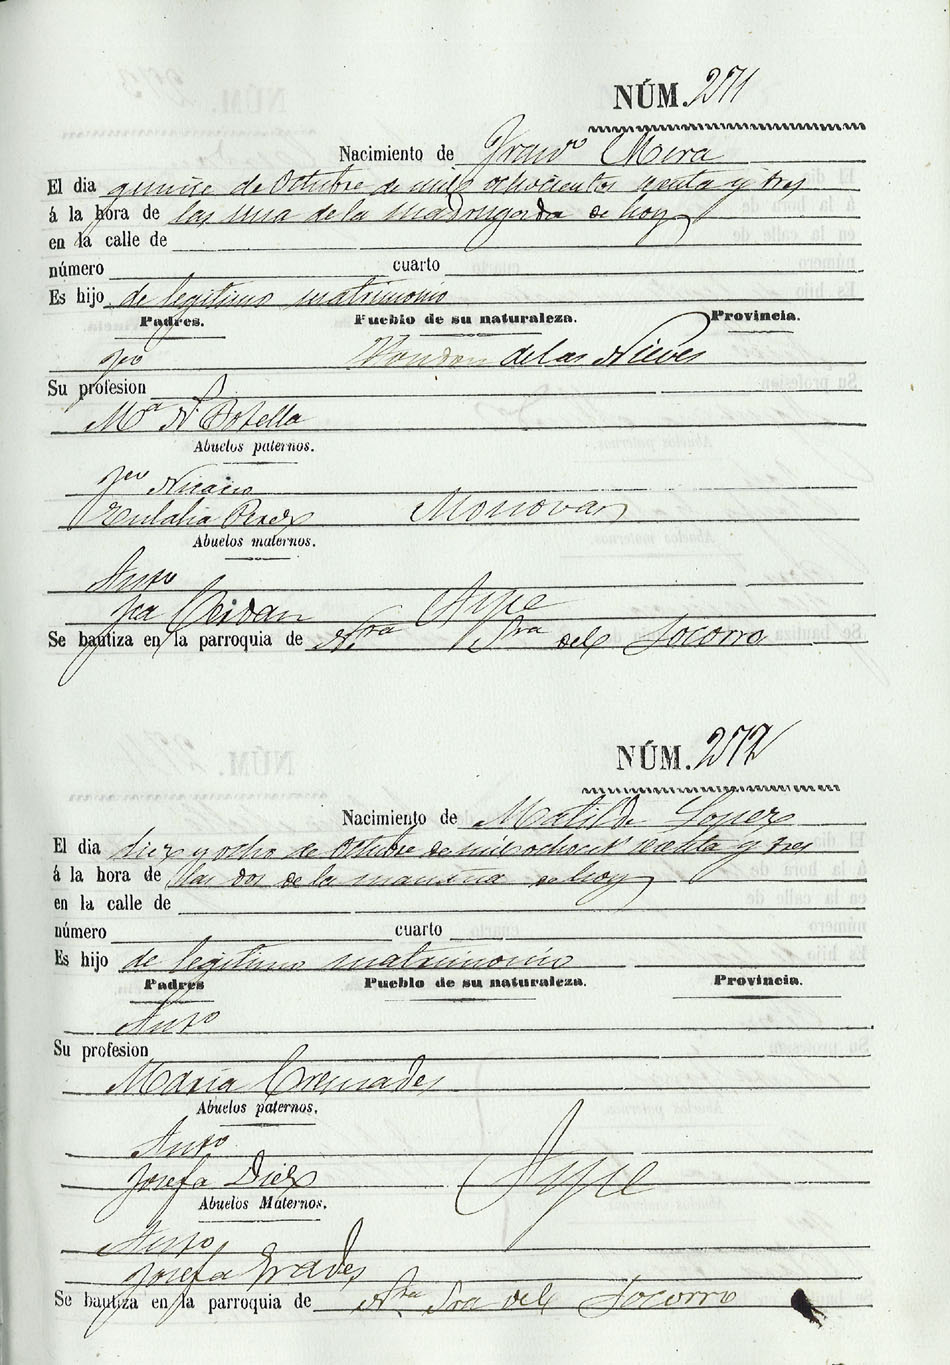 NÚM. 271
Nacimiento de Franco Mira
El dia quince de Octubre de mil ochocientos senta y tres
á la hora de las una de la madrugada de hoy
en la calle de
número cuarto
Es hijo de legitimo matrimonio
Padres. Pueblo de su naturaleza. Provincia.
Jco Hondon de las Nieves
Su profesion
Ma N. Botella
Abuelos paternos.
Jco Nicacio
Eulalia Perez Monovar
Abuelos maternos.
Anto
Jca Cerdan Aspe
Se bautiza en la parroquia de Ntra Sra del Socorro
NÚM. 272
Nacimiento de Matilde Lopez
El dia diez y ocho de Octubre de mil ochocits senta y tres
á la hora de las dos de la mañana de hoy
en la calle de
número cuarto
Es hijo de legitimo matrimonio
Padres Pueblo de su naturaleza. Provincia.
Anto
Su profesion
Maria Cremades
Abuelos paternos.
Anto
Josefa Diez Aspe
Abuelos Maternos.
Anto
Josefa Prades
Se bautiza en la parroquia de Ntra Sra del Socorro